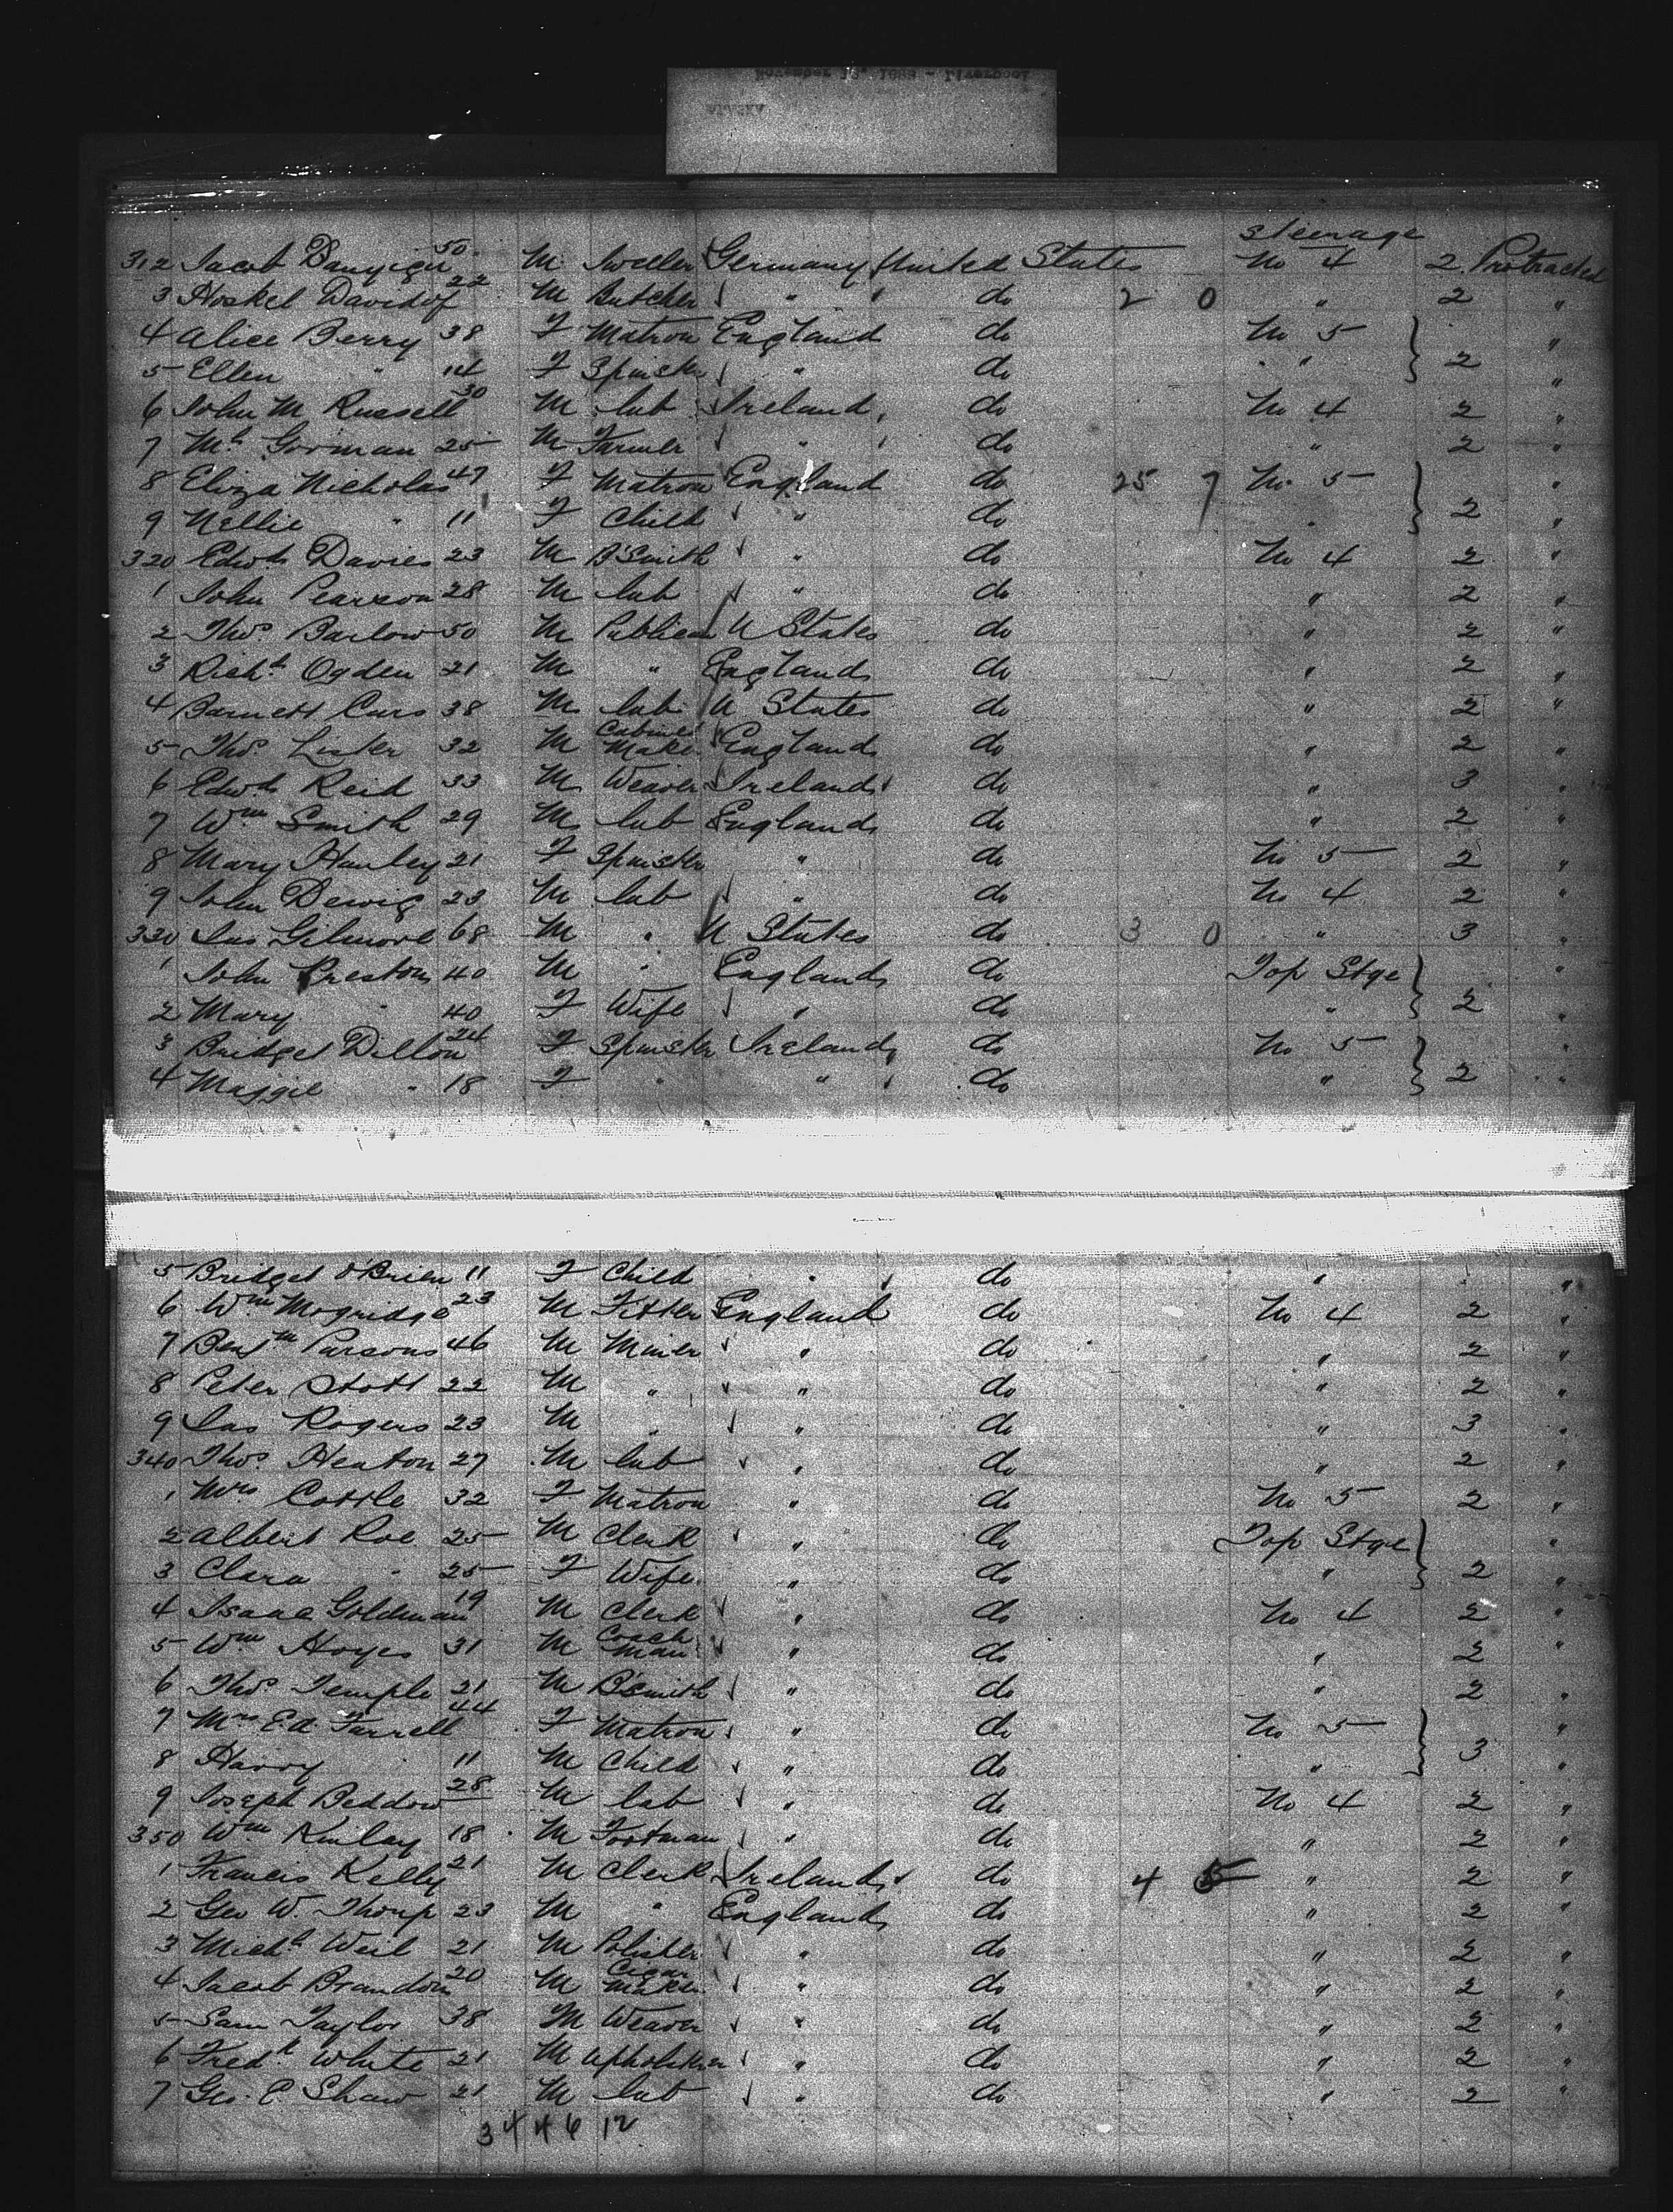 steerage
312 Jacob 50 M Jweller Germany United States No 4 2 Protracted
3 Hoskel Davidof 22 M Butcher " do 2 0 " 2 "
4 Alice Berry 38 F Matron England do No 5 "
5 Ellen " 14 F Spinster " do " 2 "
6 John M Russell 30 M lab Ireland do No 4 2 "
7 Mt Gorman 25 M Farmer " do " 2 "
8 Eliza Nicholas 47 F Matron England do 25 7 No 5 "
9 Nellie " 11 F Child " do " 2 "
320 Edwd Davies 23 M B'Smith " do No 4 2 "
1 John Pearson 28 M lab " do " 2 "
2 Thos Barlow 50 M Publican U States do " 2 "
3 Richd Ogden 21 M " England do " 2 "
4 Barnett Cars 38 M lab U States do " 2 "
5 Thos Linter 32 M Cabinet Maker England do " 2 "
6 Edwd Reid 33 M Weaver Ireland do " 3 "
7 Wm Smith 29 M lab England do " 2 "
8 Mary Hanley 21 F Spinster " do No 5 2 "
9 John Dewig 23 M lab " do No 4 2 "
330 Jas Gilmore 68 M " U States do 3 0 " 3 "
1 John Preston 40 M " England do Top Stge "
2 Mary " 40 F Wife " do " 2 "
3 Bridget Dillon 24 F Spinster Ireland do No 5 "
4 Maggie " 18 F " " do " 2 "
5 Bridget O'Brien 11 F Child " do " "
6 Wm Mogridge 23 M Fitter England do No 4 2 "
7 Benjm Parsons 46 M Miner " do " 2 "
8 Peter Stott 22 M " " do " 2 "
9 Jas Rogers 23 M " " do " 3 "
340 Thos Heaton 27 M lab " do " 2 "
1 Mrs Cottle 32 F Matron " do No 5 2 "
2 Albert Roe 25 M Clerk " do Top Stge "
3 Clara " 25 F Wife " do " 2 "
4 Isaac Goldman 19 M Clerk " do No 4 2 "
5 Wm Hoyes 31 M Coach man " do " 2 "
6 Thos Temple 21 M B'smith " do " 2 "
7 Mrs E.A. Farrell 44 F Matron " do No 5 "
8 Harry " 11 M Child " do " 3 "
9 Joseph Beddow 28 M lab " do No 4 2 "
350 Wm Kinley 18 M Footman " do " 2 "
1 Francis Kelly 21 M Clerk Ireland do 4 5 " 2 "
2 Geo W. Thorp 23 M " England do " 2 "
3 Michl Weil 21 M Polisher " do " 2 "
4 Jacob Brandon 20 M Cigar Maker " do " 2 "
5 Sam Taylor 38 M Weaver " do " 2 "
6 Fredk White 21 M Upholsterer " do " 2 "
7 Geo. E Shaw 21 M lab " do " 2 "
34 4 6 12